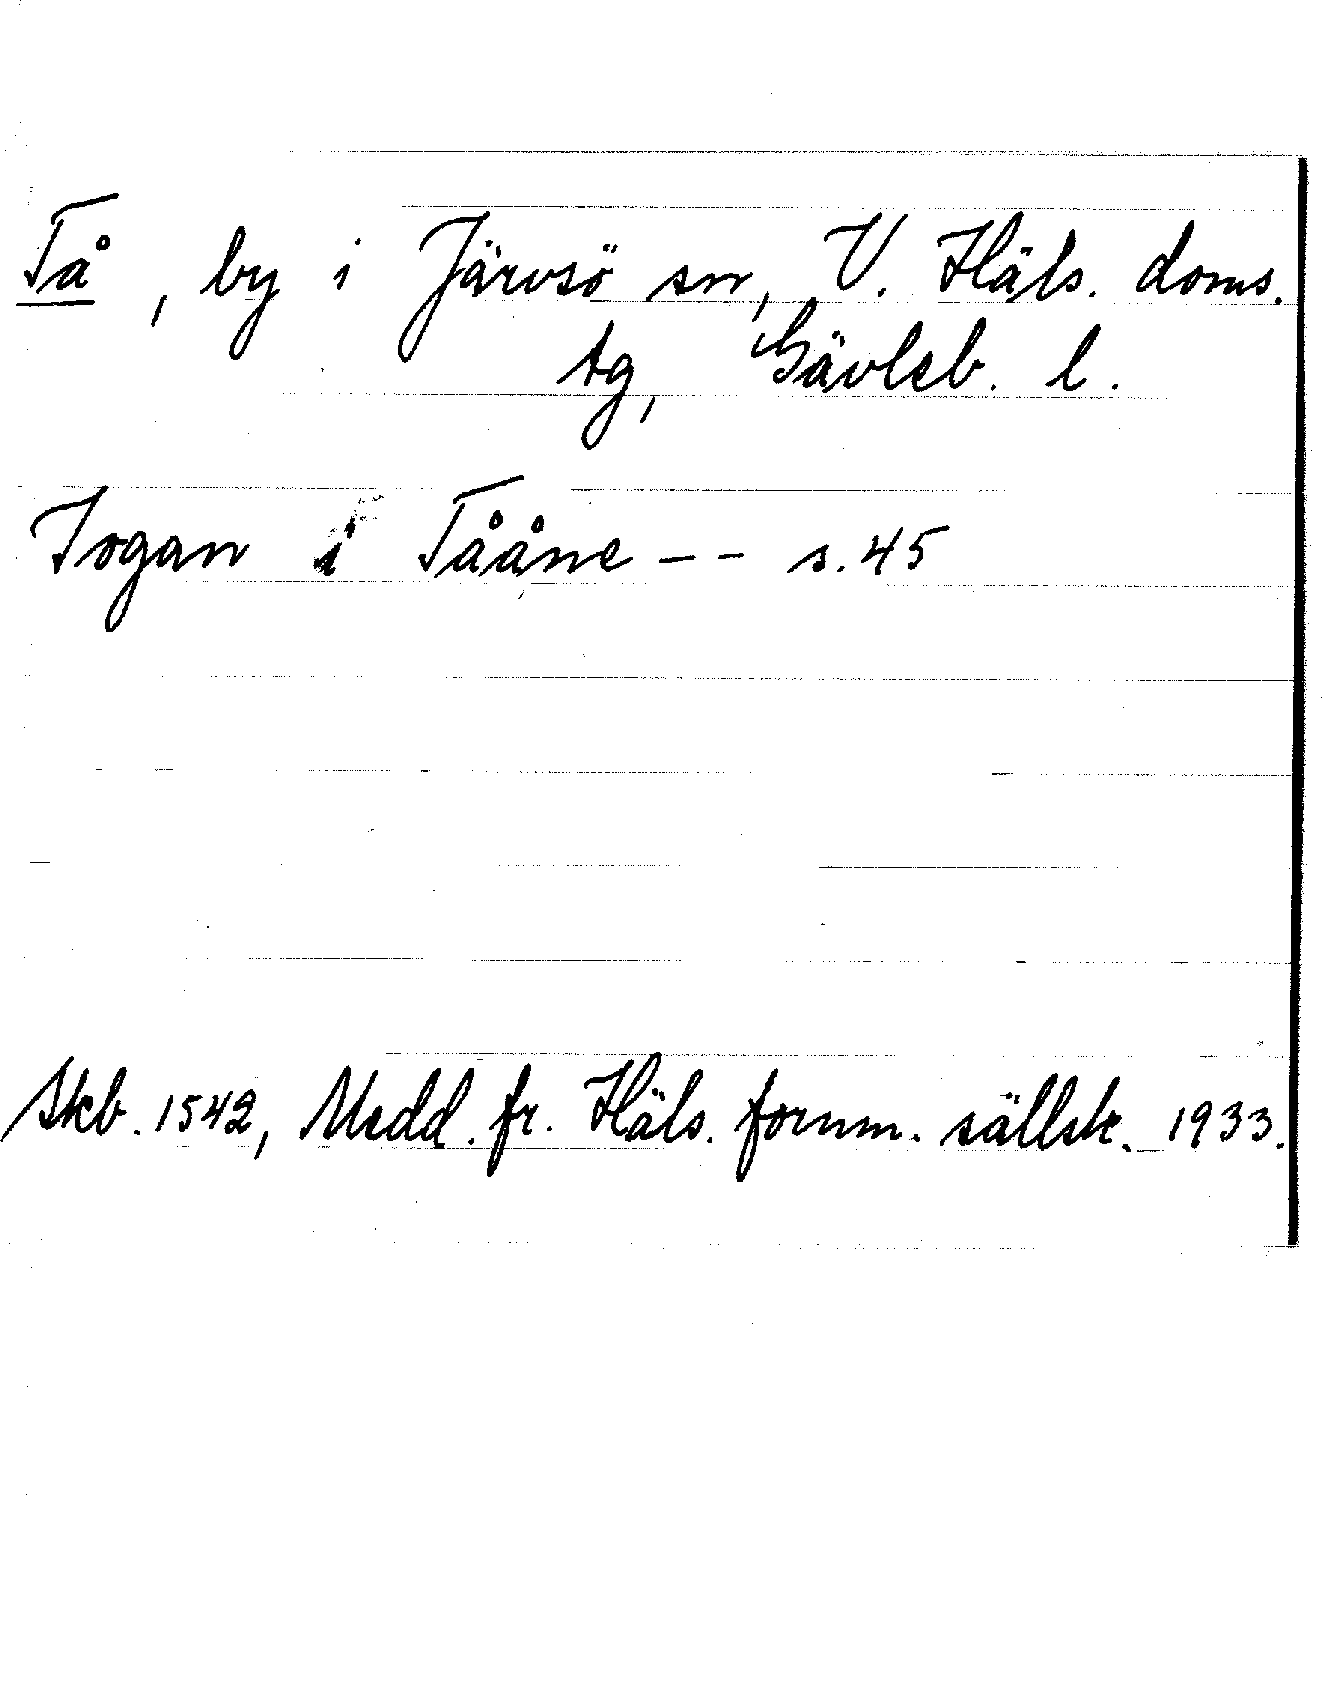 Tå, by i Järvsö sn, V. Häls. doms.
tg, Gävleb. l.
Jogan i Tååne -- s. 45
Skb. 1542, Medd. fr. Häls. fornm. sällsk. 1933.